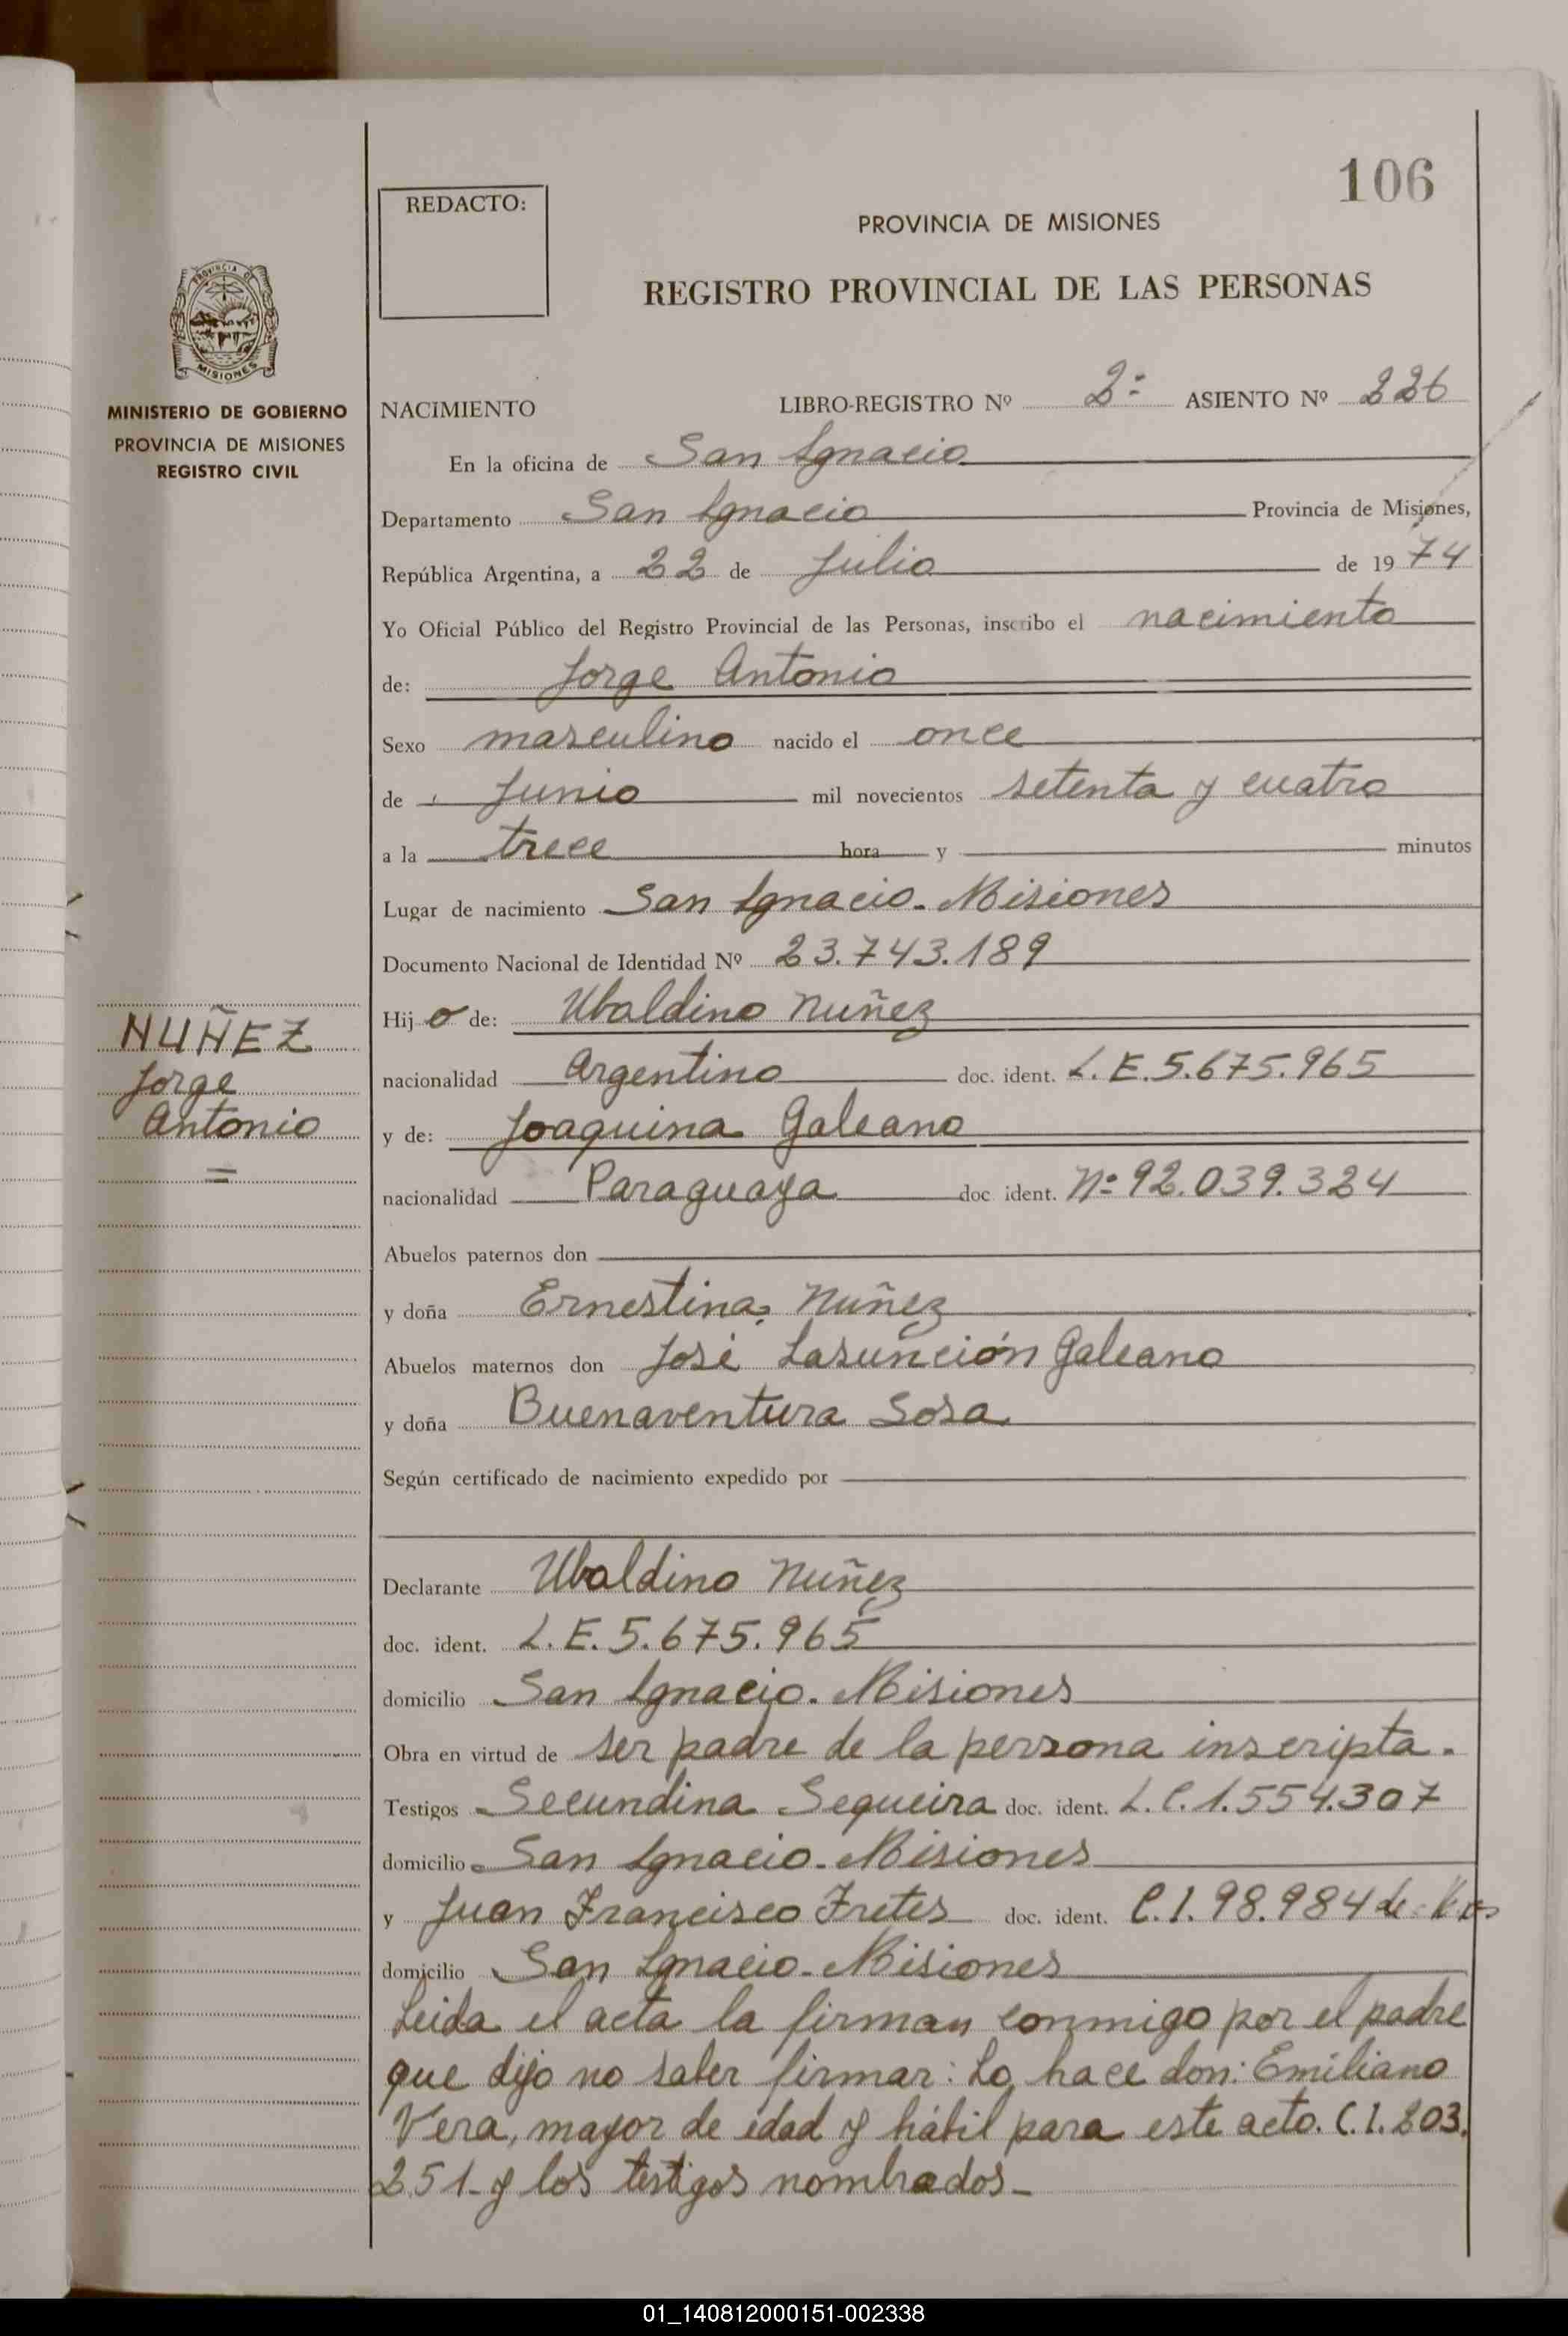 106
REDACTO:
PROVINCIA DE MISIONES
REGISTRO PROVINCIAL DE LAS PERSONAS
PROVINCIA DE
MISIONES
MINISTERIO DE GOBIERNO
PROVINCIA DE MISIONES
REGISTRO CIVIL
NACIMIENTO LIBRO-REGISTRO Nº 2º ASIENTO Nº 226
En la oficina de San Ignacio
Departamento San Ignacio Provincia de Misiones,
República Argentina, a 22 de Julio de 1974
Yo Oficial Público del Registro Provincial de las Personas, inscribo el nacimiento
de: Jorge Antonio
Sexo masculino nacido el once
de Junio mil novecientos setenta y cuatro
a la trece hora y minutos
Lugar de nacimiento San Ignacio - Misiones
Documento Nacional de Identidad Nº 23.743.189
Hijo de: Ubaldino Nuñez
nacionalidad Argentino doc. ident. L.E. 5.675.965
y de: Joaquina Galeano
nacionalidad Paraguaya doc ident. Nº 92.039.324
NUÑEZ
Jorge
Antonio
=
Abuelos paternos don
y doña Ernestina Nuñez
Abuelos maternos don José Lasunción Galeano
y doña Buenaventura Sosa
Según certificado de nacimiento expedido por
Declarante Ubaldino Nuñez
doc. ident. L.E. 5.675.965
domicilio San Ignacio. Misiones
Obra en virtud de ser padre de la persona inscripta.
Testigos Secundina Sequeira doc. ident. L.C. 1.554.307
domicilio San Ignacio - Misiones
y Juan Francisco Fretes doc. ident. C.I. 98.984 de
domicilio San Ignacio - Misiones
Leida el acta la firman conmigo por el padre
que dijo no saber firmar: Lo hace don: Emiliano
Vera, mayor de edad y hábil para este acto. C.I. 203.
251- y los testigos nombrados-
01_140812000151-002338